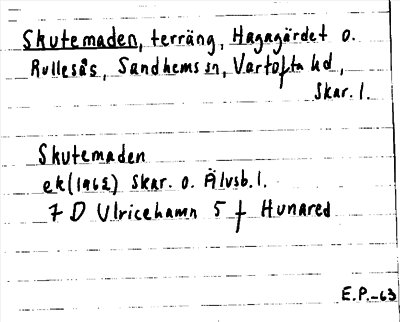 Skutemaden, terräng, Hagagärdet o.
Rullesås, Sandhems sn, Vartofta hd,
Skar. l.
Skutemaden
ek (1962) Skar. o. Älvsb. l.
7 D Ulricehamn 5 f Hunared
E.P.-63